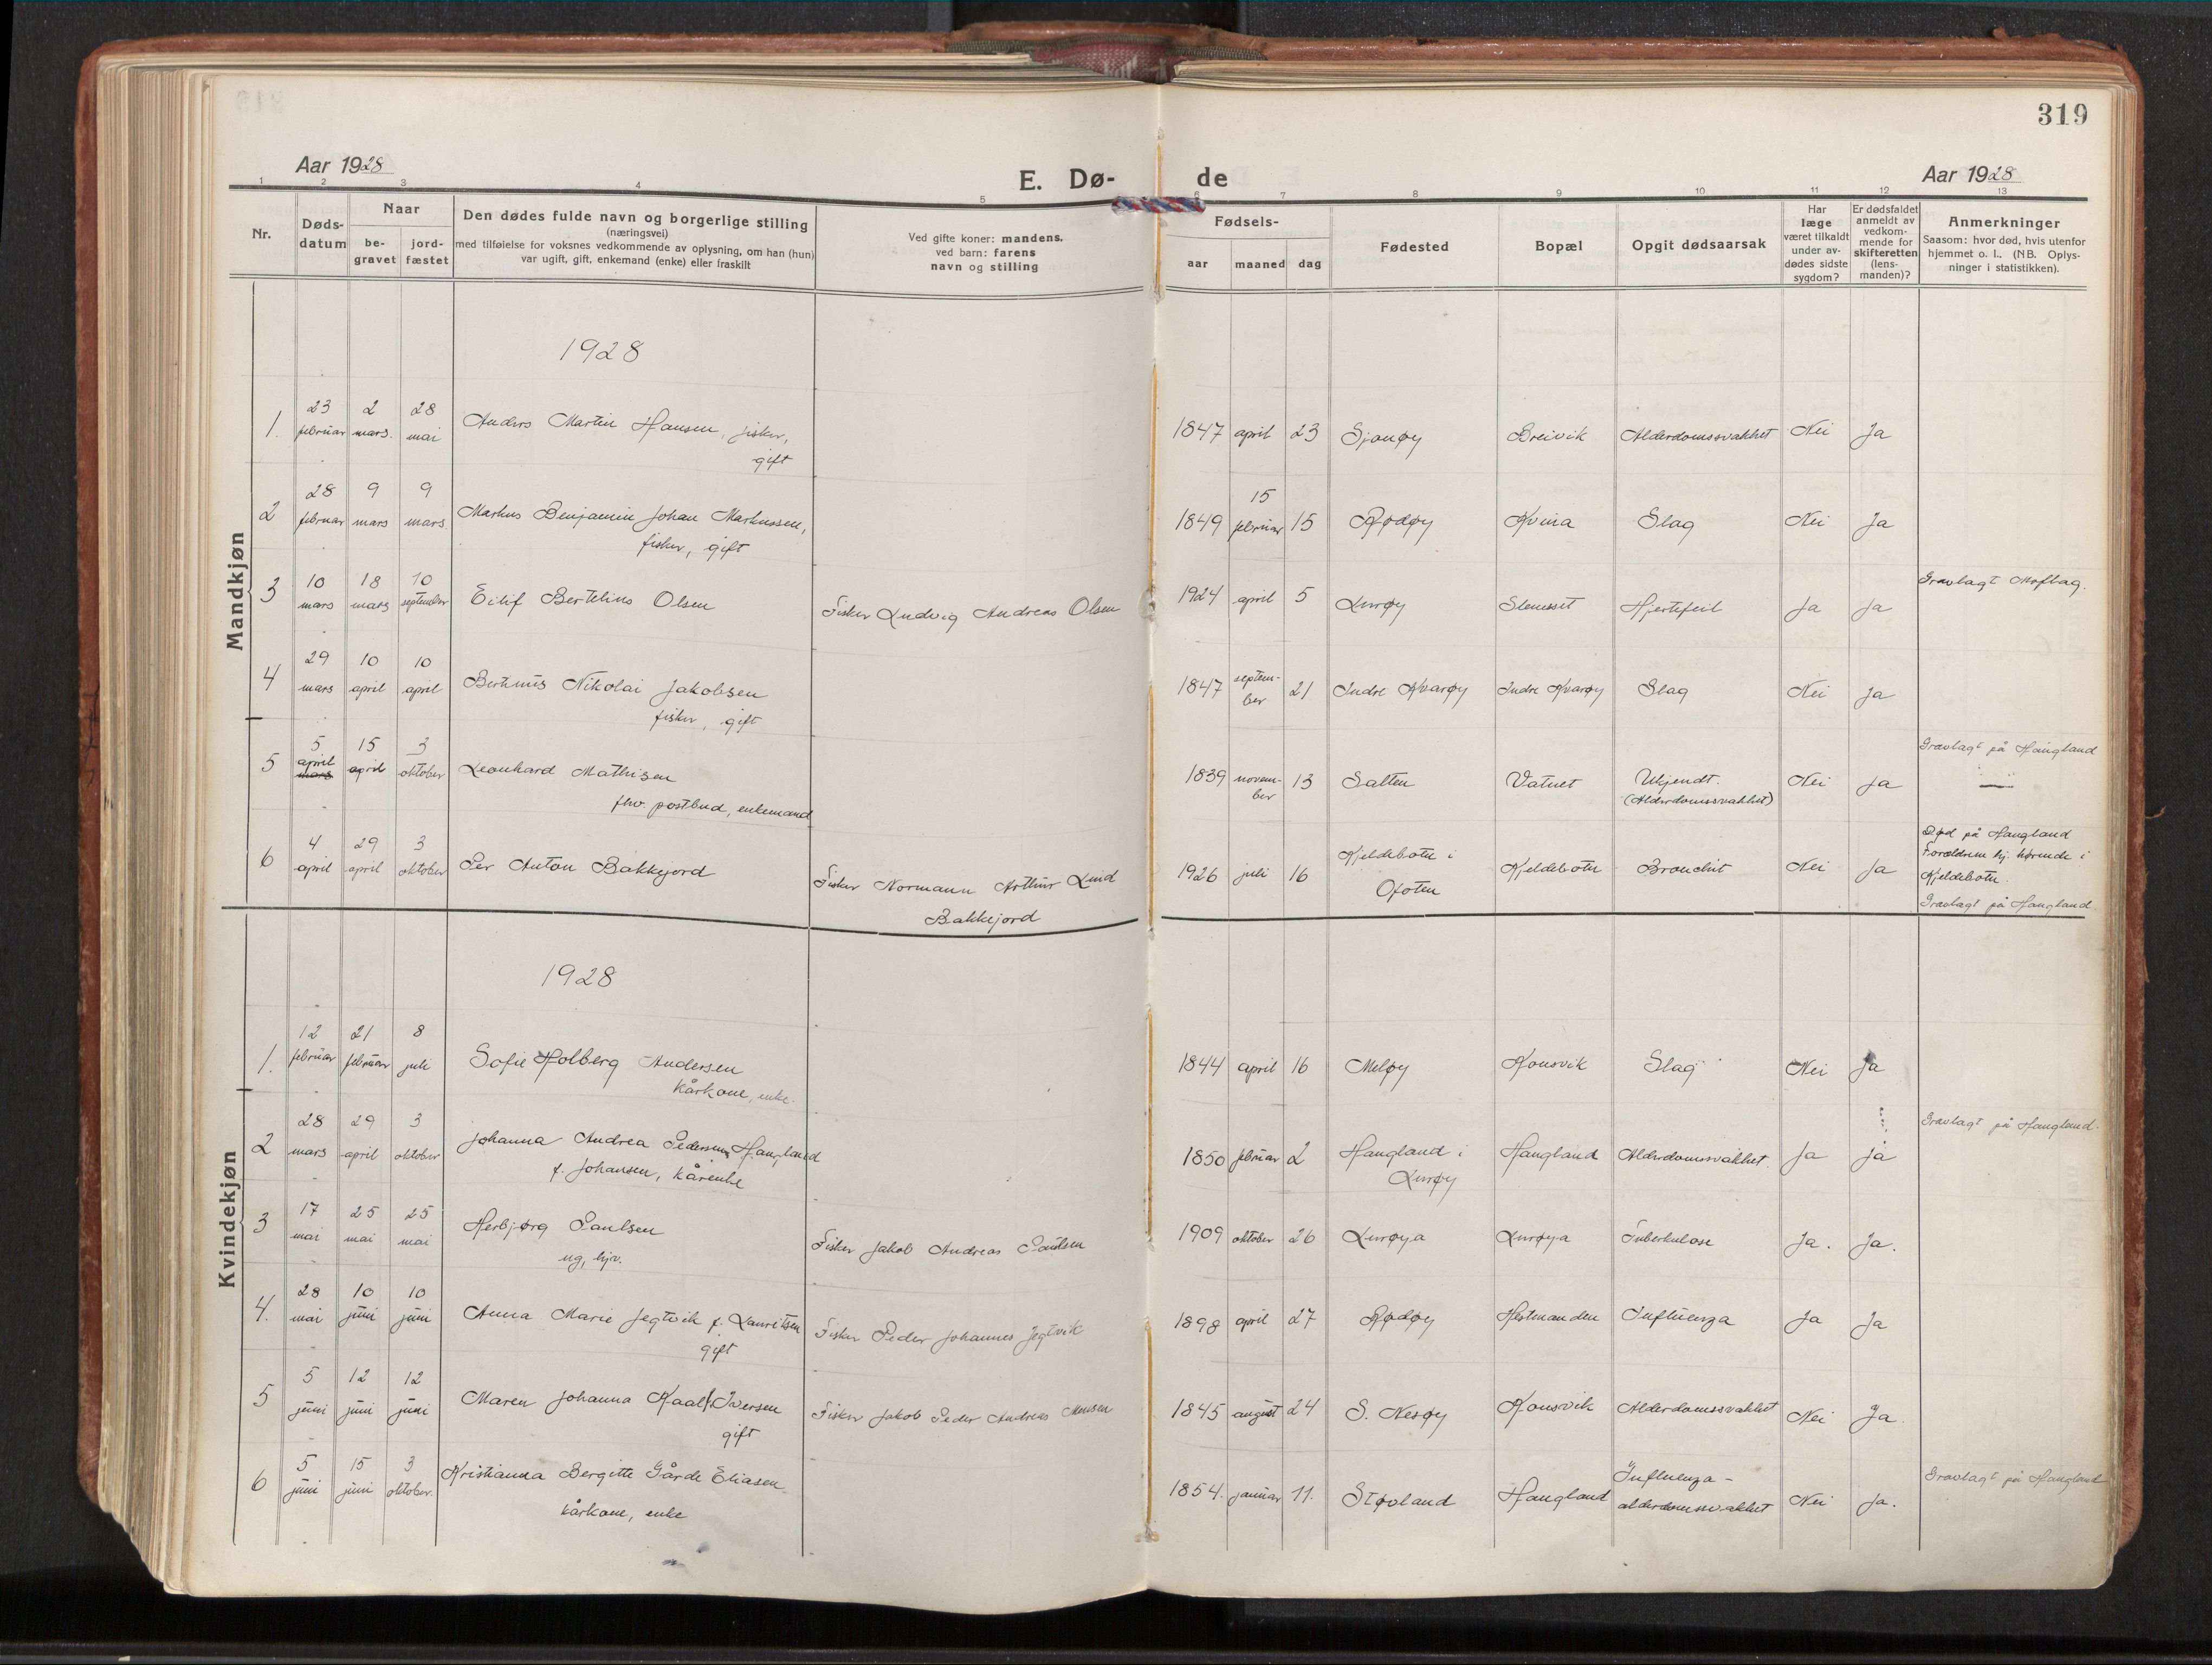 319
Aar 1928
E. Dø-
de
Aar 1928
1 2 3 4 5 6 7 8 9 10 11 12 13
Nr.
Døds-
datum
Naar
be-
gravet
jord-
fæstet
Den dødes fulde navn og borgerlige stilling
(næringsvei)
med tilføielse for voksnes vedkommende av oplysning, om han (hun)
var ugift, gift, enkemand (enke) eller fraskilt
Ved gifte koner: mandens.
ved barn: farens
navn og stilling
Fødsels-
aar maaned dag
Fødested
Bopæl
Opgit dødsaarsak
Har
læge
været tilkaldt
under av-
dødes sidste
sygdom?
Er dødsfaldet
anmeldt av
vedkom-
mende for
skifteretten
(lens-
manden)?
Anmerkninger
Saasom: hvor død, hvis utenfor
hjemmet o. l.. (NB. Oplys-
ninger i statistikken).
Mandkjøn
1928
1.
23
februar
2
mars.
28
mai
Anders Martin Hansen, fisker,
gift
1847 april 23 Sjonøy Breivik Alderdomssvakhet Nei Ja
2
28
februar
9
mars
9
mars
Markus Benjamin Johan Markussen,
fisker, gift
15
1849 februar 15 Rødøy Kvina Slag Nei Ja
3
10
mars
18
mars
10
september
Eilif Bertelius Olsen
Fisker Ludvig Andreas Olsen
1924 april 5 Lurøy Stensset Hjertefeil Ja Ja
Gravlagt
4
29
mars
10
april
10
april
Bertinus Nikolai Jakobsen
fisker, gift
1847 septem-
ber 21 Indre Kvarøy Indre Kvarøy Slag Nei Ja
5
5
april
mars
15
april
3
oktober
Leonhard Mathisen
fhv. postbud, enkemand
1839 novem-
ber 13 Salten Vatnet Ukjendt.
(Alderdomssvakhet) Nei Ja
Gravlagt på Haugland
6
4
april
29
april
3
oktober
Per Anton Bakkejord
Fisker Normann Arthur Lind
Bakkejord
1926 juli 16 Kjeldebotn i
Ofoten
Kjeldebotn Bronchit Nei Ja
Død på Haugland
Forældrene hj. hørende i
Kjeldebotn.
Gravlagt på Haugland.
Kvindekjøn
1928
1.
12
februar
21
februar
8
juli
Sofie Holberg Andersen
kårkone, enke.
1844 april 16 Meløy Konsvik Slag Nei Ja
2
28
mars
29
april
3
oktober
Johanna Andrea Pedersen Haugland
f. Johansen, kårenke
1850 februar 2 Haugland i
Lurøy
Haugland Alderdomssvakhet. Ja Ja
Gravlagt på Haugland.
3
17
mai
25
mai
25
mai
Herbjørg Paulsen
ug, hjv.
Fisker Jakob Andreas Paulsen
1909 oktober 26 Lurøya Lurøya Tuberkulose Ja. Ja.
4.
28
mai
10
juni
10
juni
Anna Marie Jegtvik f. Lauritsen
gift
Fisker Peder Johannes Jegtvik
1898 april 27 Rødøy Hestmanden Influenza Ja Ja
5
5
juni
12
juni
12
juni
Maren Johanna Kaal f. Iversen
gift
Fisker Jakob Peder Andreas Monsen
1845 august 24 S. Nesøy Konsvik Alderdomssvakhet Nei Ja.
6
5
juni
15
juni
3
oktober.
Kristianna Bergitte Gårde Eliasen
kårkone, enke
1854. januar 11. Støvland Haugland Influenza -
alderdomssvakhet Nei Ja.
Gravlagt på Haugland